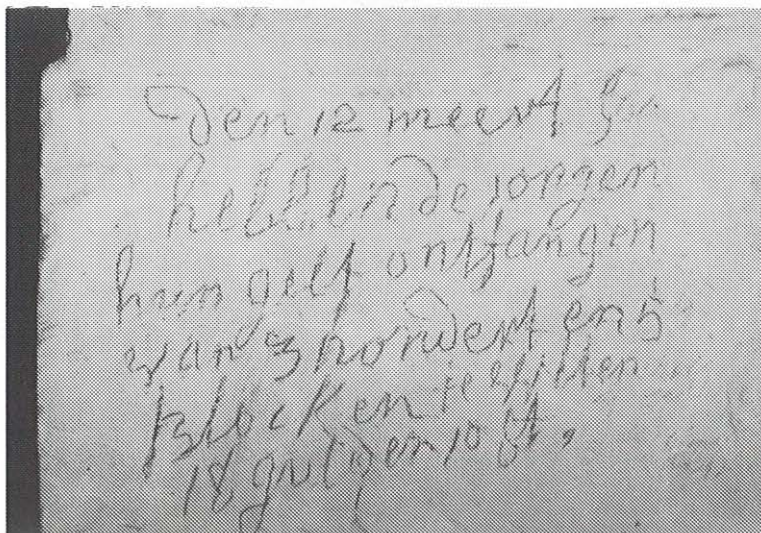 den 12 meert
hebben de jongen
hun gelt ontfangen
van 3 hondert en 5
blocken te
18 gulden 10 st.